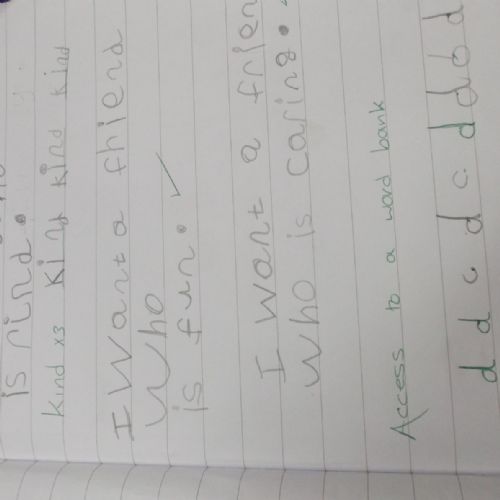 is rind.
kind x3 kind kind kind
I want a fhiend
Who
is fun. ✓
I want a frien
Who is caring.
Access to a word bank
d d c d c d d b d